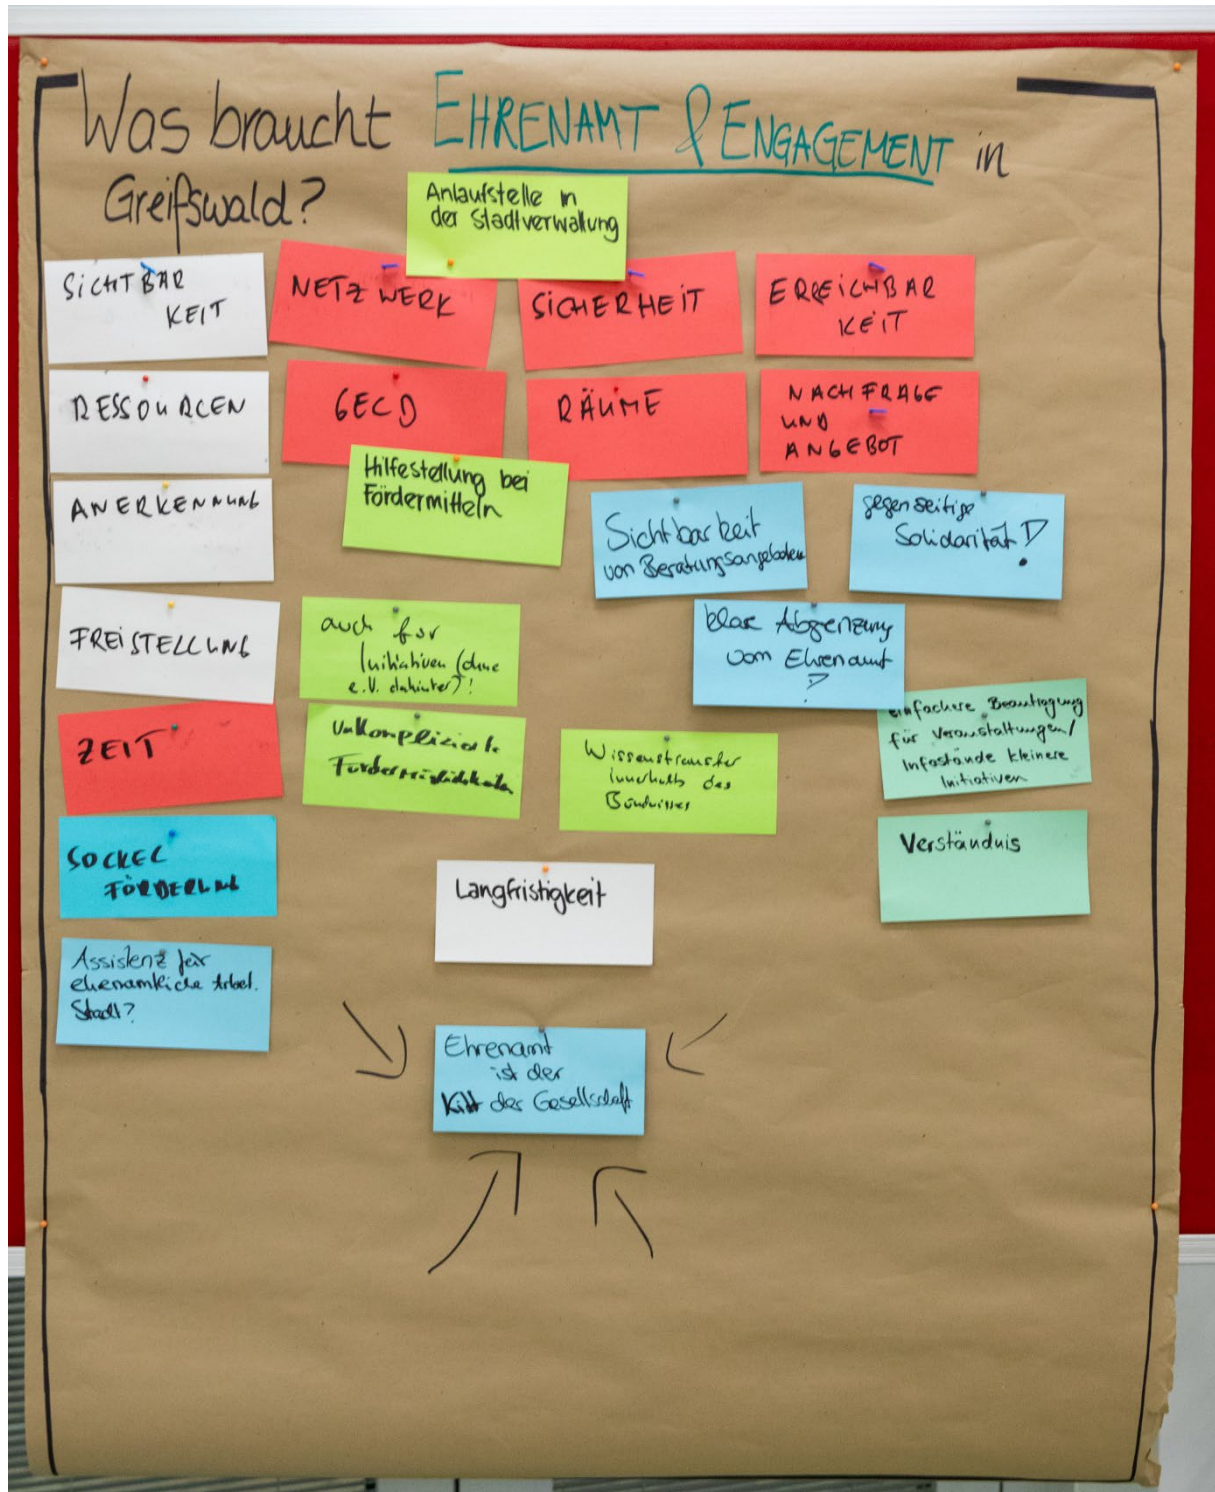 Was braucht EHRENAMT & ENGAGEMENT in
Greifswald?
Anlaufstelle in
der Stadtverwaltung
SICHTBAR
KEIT
NETZWERK
SICHERHEIT
ERREICHBAR
KEIT
RESSOURCEN
GELD
RÄUME
NACHFRAGE
UND
ANGEBOT
Hilfestellung bei
Fördermitteln
ANERKENNUNG
Sichtbarkeit
von Beratungsangeboten
gegenseitige
Solidarität!
FREISTELLUNG
auch für
Initiativen (ohne
e.V. dahinter)!
klare Abgrenzung
vom Ehrenamt
?
einfachere Beantragung
für Veranstaltungen/
Infostände kleinere
Initiativen
ZEIT
Unkomplizierte
Fördermöglichkeiten
Wissenstransfer
innerhalb des
Bündnisses
Verständnis
SOCKEL
FÖRDERUNG
Langfristigkeit
Assistenz für
ehrenamtliche Arbeit.
Stadt?
Ehrenamt
ist der
Kitt der Gesellschaft